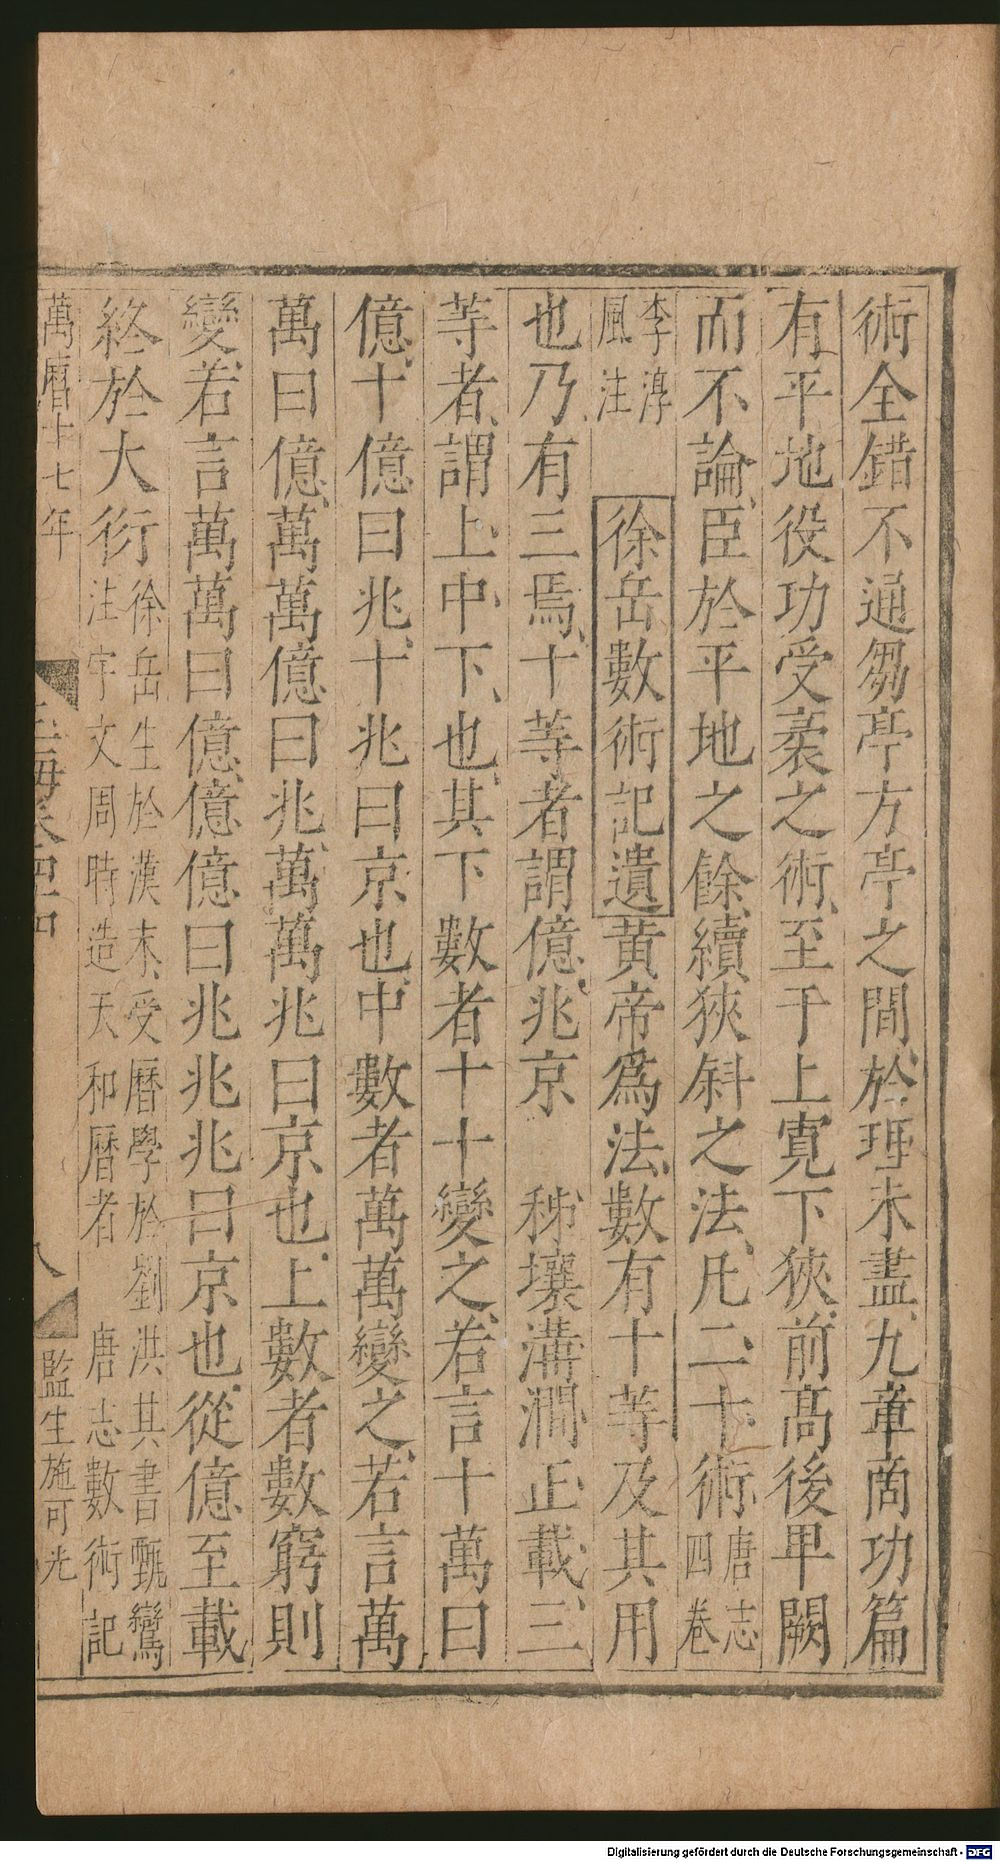 術全錯不通芻亭方亭之間於理未盡九章商功篇
有平地役功受袤之術至于上寬下狹前高後卑闕
而不論臣於平地之餘續狹斜之法凡二十術唐志四卷
李淳風注 徐岳數術記遺黄帝爲法數有十等及其用
也乃有三焉十等者謂億兆京 秭壤溝澗正載三
等者謂上中下也其下數者十十變之若言十萬曰
億十億曰兆十兆曰京也中數者萬萬變之若言萬
萬曰億萬萬億曰兆萬萬兆曰京也上數者數窮則
變若言萬萬曰億億億曰兆兆兆曰京也從億至載
終於大衍徐岳生於漢末受曆學於劉洪其書甄鸞注宇文周時造天和曆者 唐志數術記
萬曆十七年 玉海卷四十四 八 監生施可光
Digitalisierung gefördert durch die Deutsche Forschungsgemeinschaft - DFG